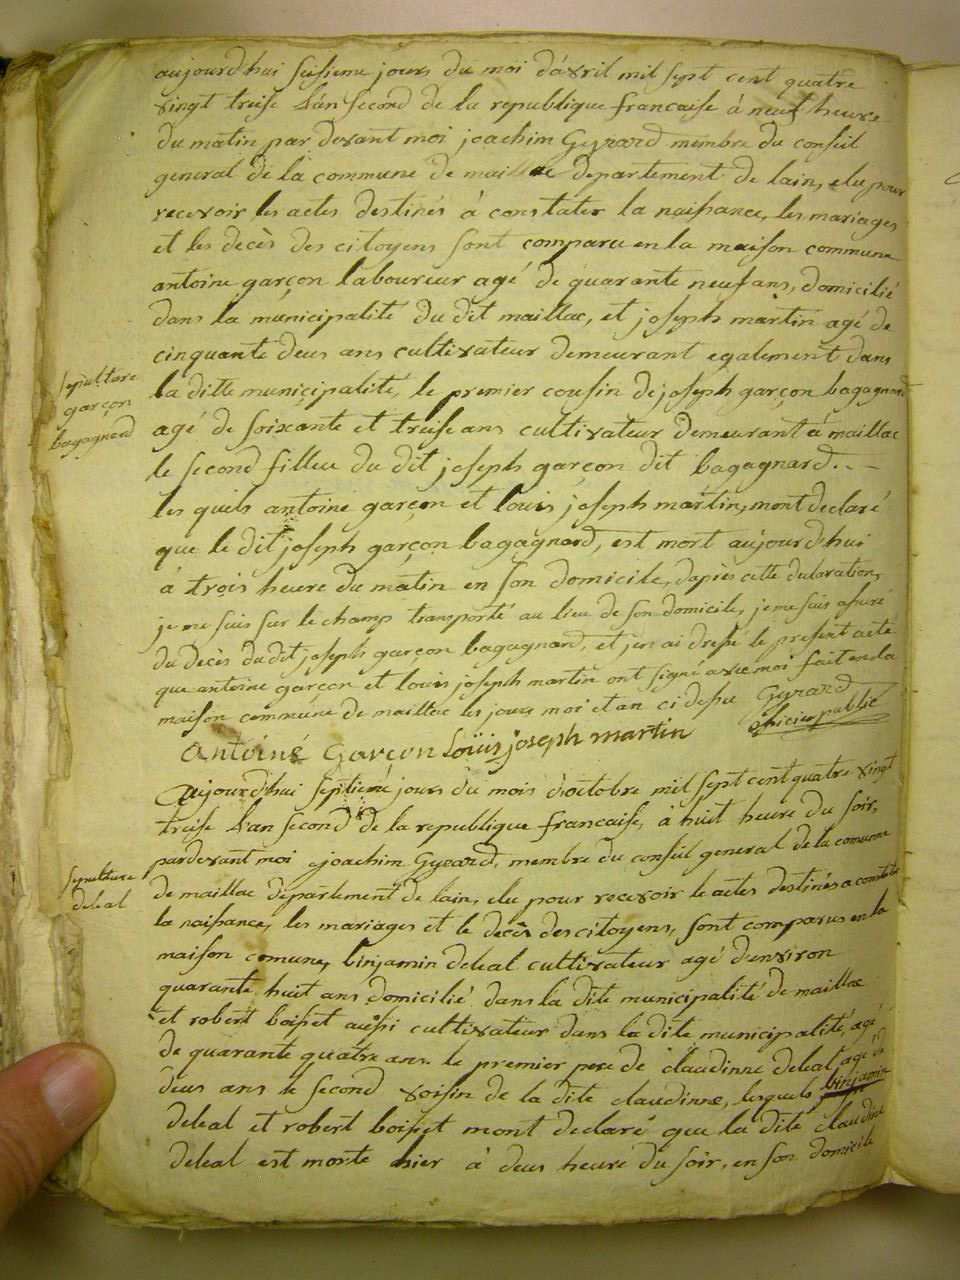 aujourdhui seisieme jours du moi d'avril mil sept cent quatre
vingt treise l'an second de la republique francaise à neuf heure
du matin par devant moi joachim Gyrard membre du conseil
general de la commune de maillac departement de lain, elu pour
recevoir les actes destinés à constater la naissance, les mariages
et les decès des citoyens sont comparu en la maison commune
antoine garçon laboureur agé de quarante neuf ans, domicilié
dans la municipalité du dit maillac, et joseph martin agé de
cinquante deus ans cultivateur demeurant egalement dans
la ditte municipalité, le premier cousin de joseph garçon bagagnard
agé de soixante et treise ans cultivateur demeurant à maillac
le second filleu du dit joseph garçon dit bagagnard..-
les quels antoine garçon et louis joseph martin, mont declaré
que le dit joseph garçon bagagnard, est mort aujourdhui
à trois heure du matin en son domicile, d'après cette declaration,
je me suis sur le champ transporté au lieu de son domicile, je me suis assuré
du decès du dit joseph garçon bagagnard, et j'en ai dressé le present acte
que antoine garçon et louis joseph martin ont signé avec moi fait en la
maison commune de maillac les jours moi et an ci dessu Gyrard
officier public
Antoine Garçon Loüis joseph martin
sepulture
garçon
bagagnard
Aujourd'hui septieme jours du mois d'octobre mil sept cent quatre vingt
treise l'an second de la republique francaise, à huit heure du soir,
pardevant moi joachim Gyrard, membre du conseil general de la comune
de maillac departement de lain, elu pour recevoir le actes destinés a constater
la naissance, les mariages et le decès des citoyens, sont comparus en la
maison comune, binjamin deleal cultivateur agé d'environ
quarante huit ans domicilié dans la dite municipalité de maillac
et robert boisset aussi cultivateur dans la dite municipalité, agé
de quarante quatre ans. le premier pere de claudinne deleal, agé de
deus ans le second voisin de la dite claudinne, lesquels binjamin
deleal et robert boisset mont declaré que la dite claudine
deleal est morte hier à deus heure du soir, en son domicile
sepulture
deleal